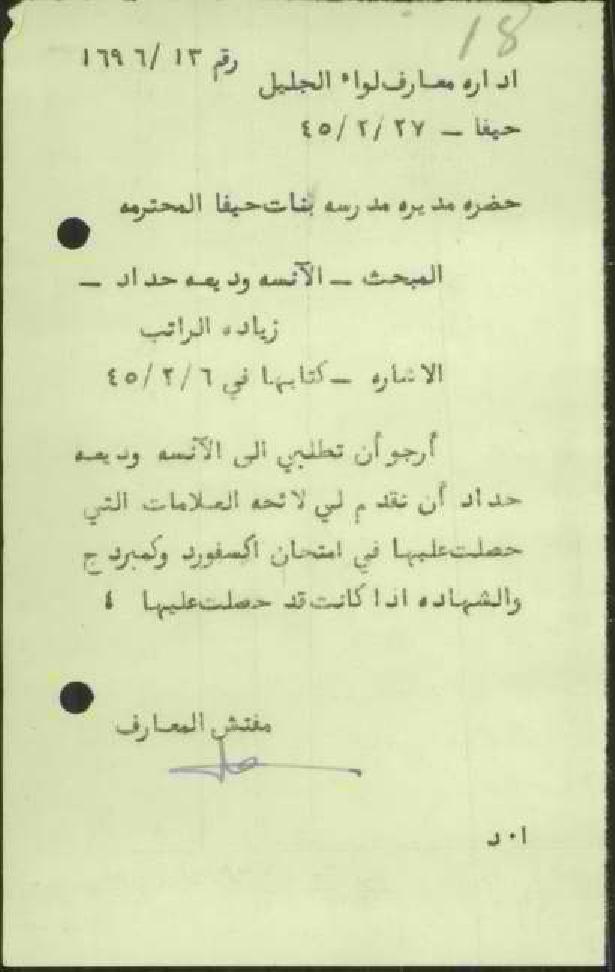 18
رقم ١٣/ ١٦٩٦
اداره معارف لواء الجليل
حيفا — ٤٥/٢/٢٧
حضره مديره مدرسه بنات حيفا المحترمه
المبحث — الآنسه وديعه حداد —
زياده الراتب
الاشاره — كتابها في ٤٥/٢/٦
أرجو أن تطلبي الى الآنسه وديعه
حداد أن تقدم لي لائحه العلامات التي
حصلت عليها في امتحان اكسفورد وكمبردج
والشهاده اذا كانت قد حصلت عليها ٤
مفتش المعارف
ا٠د